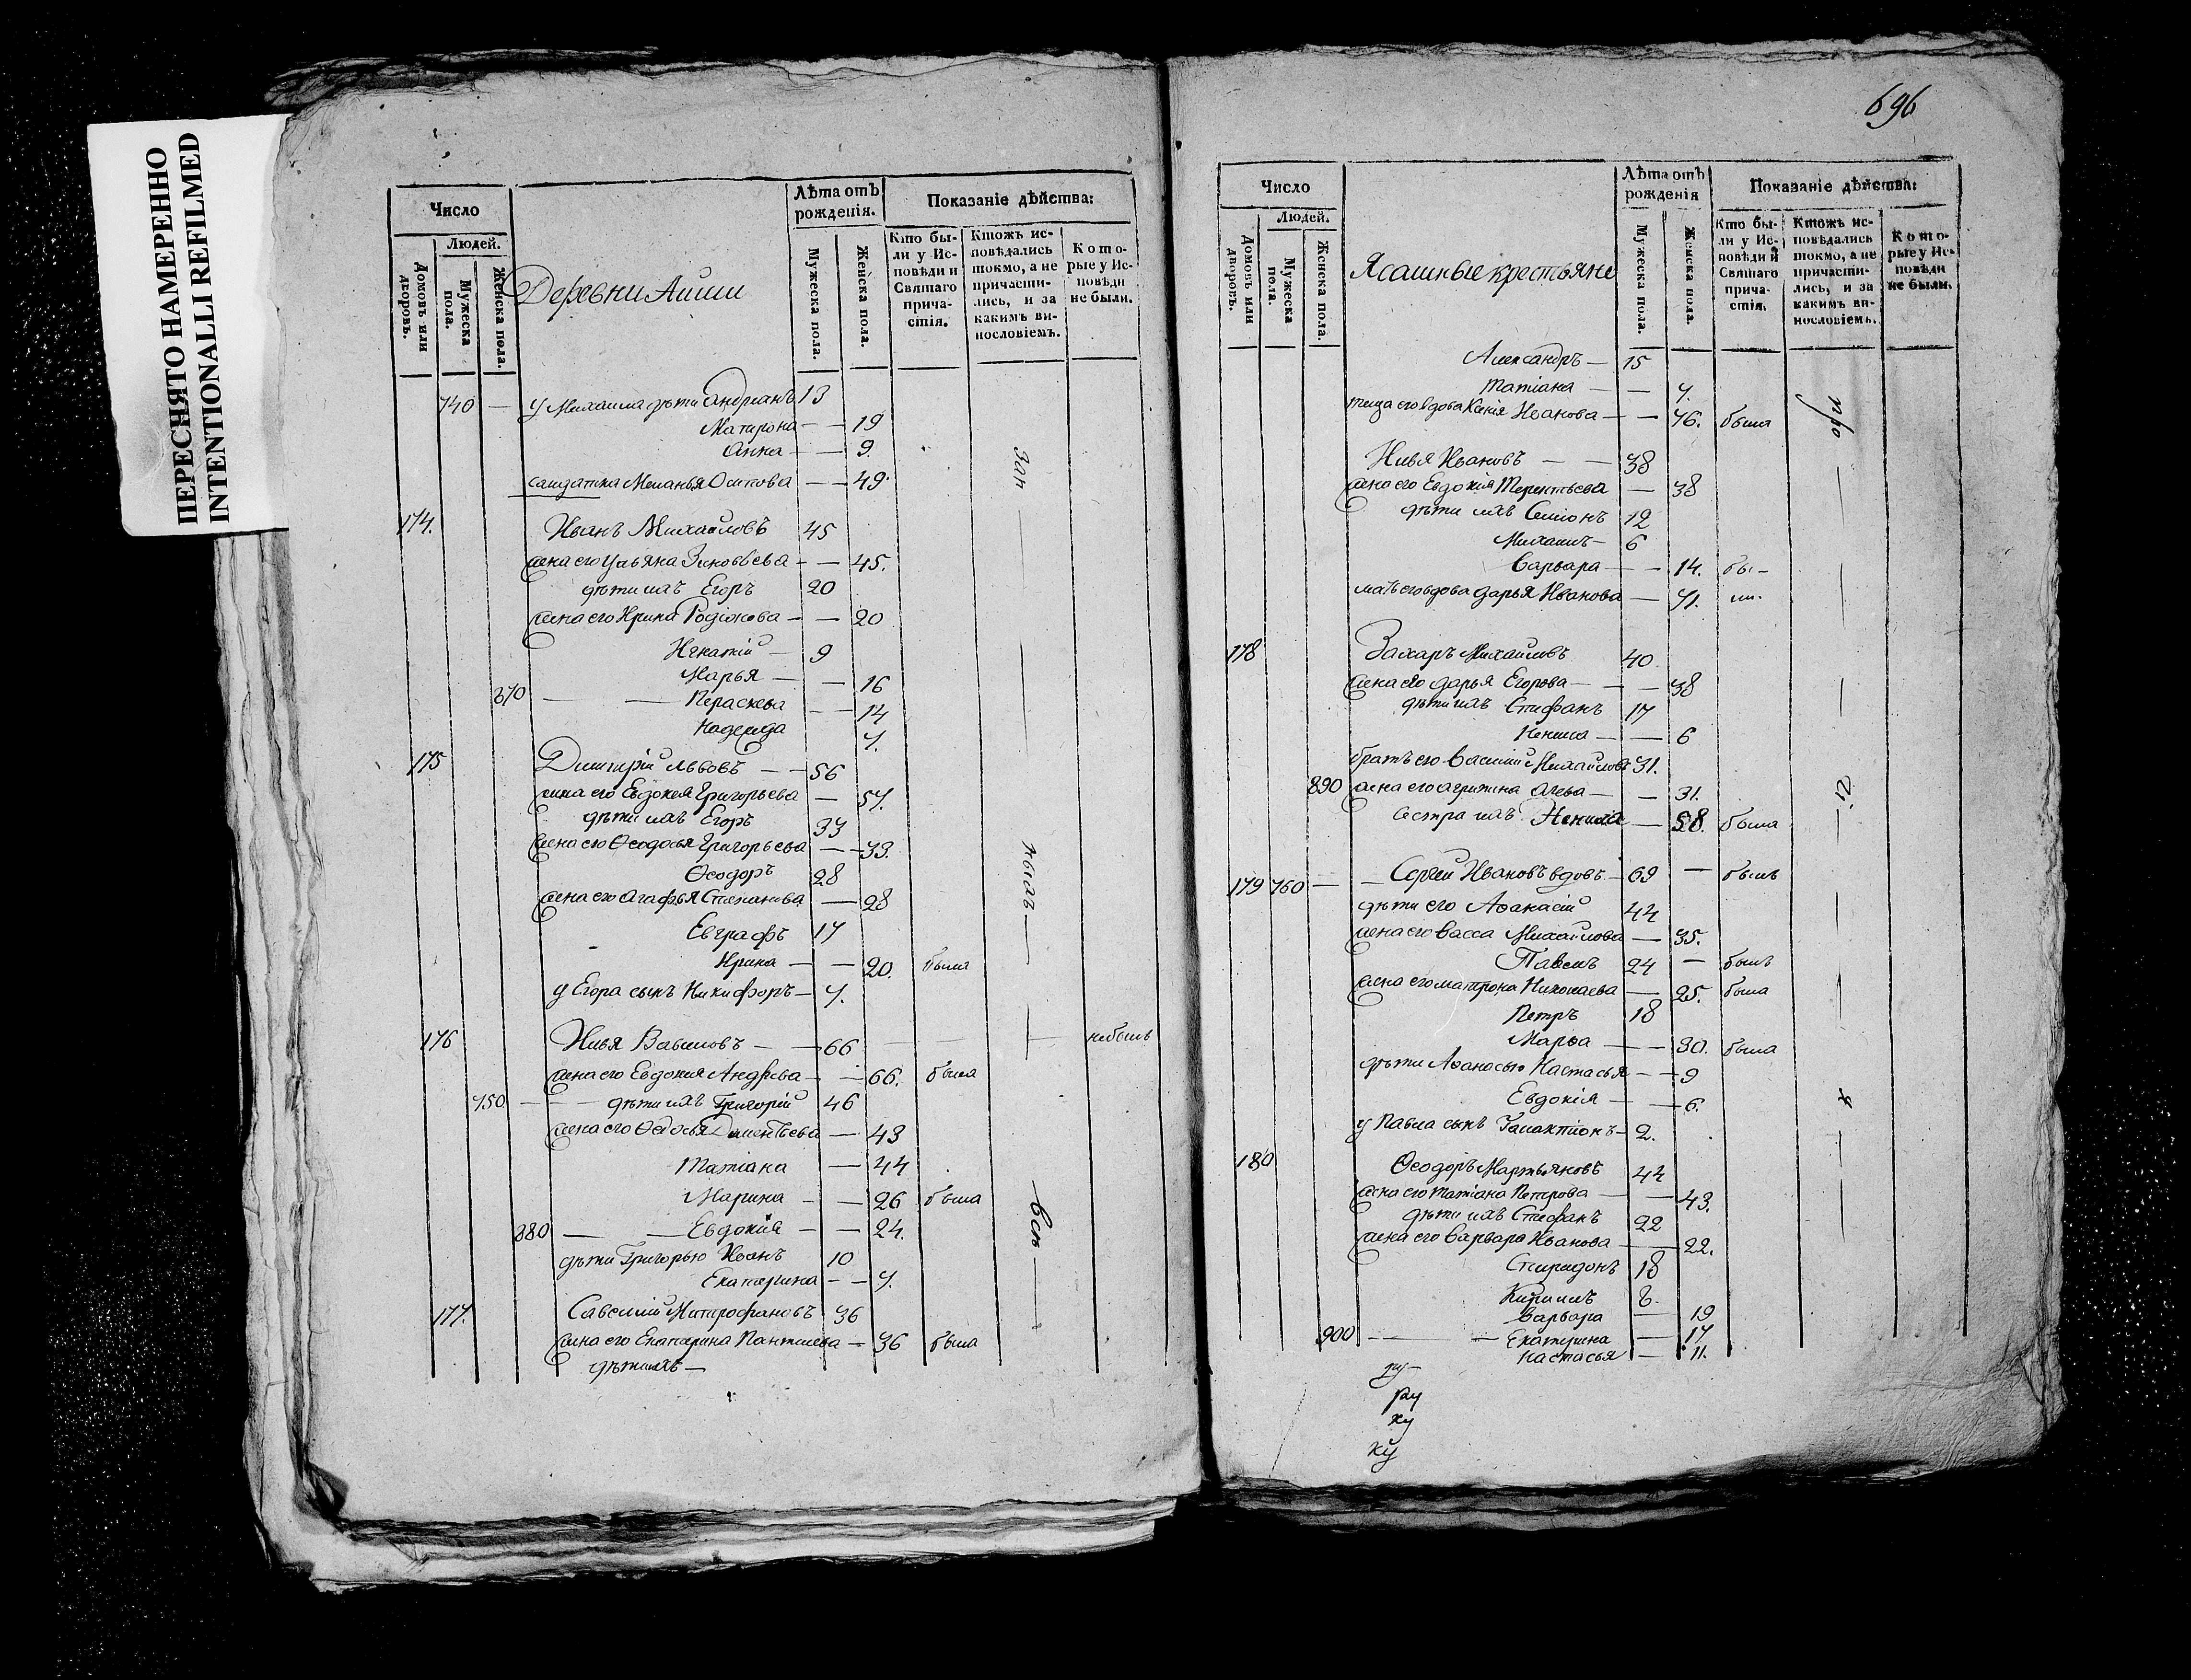 ПЕРЕСНЯТО НАМЕРЕННО
INTENTIONALLI REFILMED
696
Число
Людей.
Домовъ или дворовъ.
Мужеска пола.
Женска пола.
Деревни Аиши
Лѣта отъ рожденія.
Мужеска пола.
Женска пола.
Показаніе дѣйства:
Кто были у Исповѣди и Святаго причастія.
Ктожъ исповѣдались токмо, а не причастились, и за какимъ винословіемъ.
Которые у Исповѣди не были.
740 — у Михаила дѣти Андреанъ 13
Матрона — — 19
Анна — — 9.
салдатка Меланья Осипова — — 49.
174. Иванъ Михаиловъ 45
жена его Ульяна Зиновьева — — 45.
дѣти ихъ Егоръ 20
жена его Ирина Родіонова — — 20
Игнатій — 9
Марья — — 16
870 — — Параскева — — 14
Надежда 7.
175 Димитрій Львовъ — — 56
жена его Евдокея Григорьева — 57.
дѣти ихъ Егоръ 33
жена его Ѳеодосья Григорьева — — 33.
Ѳеодоръ 28
жена его Агафья Степанова — 28
Евграфъ 17
Ирина — — 20. была
у Егора сынъ Никифоръ — 7.
176 Илья Вавиловъ — — 66 — — небылъ
жена его Евдокия Андрѣева — — 66. была
750 — — дѣти ихъ Григорій 46
жена его Ѳедосья Дементьева — 43
Татіана — 44
Марина — — 26 была
880 — — Евдокия — — 24.
дѣти Григорью Иванъ 10
Екатерина — — 7.
177. Савелій Митрофановъ 36
жена его Екатерина Пантилева — 36 была
дѣти ихъ —
Число
Людей.
Домовъ или дворовъ.
Мужеска пола.
Женска пола.
Ясашные крестьяне
Лѣта отъ рожденія
Мужеска пола.
Женска пола.
Показаніе дѣйства:
Кто были у Исповѣди и Святаго причастія.
Ктожъ исповѣдались токмо, а не причастились, и за какимъ винословіемъ.
Которые у Исповѣди не были.
Александръ — 15
Татіана — — 7.
теща его вдова Ксенія Иванова — — 76. была
Илья Ивановъ — — 38
жена его Евдокия Терентьева — 38
дѣти ихъ Семіонъ 12
Михаилъ — 6
Варвара — — 14. бы-
мать его вдова Дарья Иванова — 71. ли.
178 Захаръ Михаиловъ 40
жена его Дарья Егорова — — — 38
дѣти ихъ Стефанъ 17
Ненила — — 6
братъ его Василій Михаиловъ 31.
890 жена его Агрипина — — 31.
сестра ихъ Ненила — 58. была
179 760 — — Сергей Ивановъ вдовъ — 69 — былъ
дѣти его Аѳанасій 44
жена его Васса Михайлова — 35.
Павелъ 24 — былъ
жена его Матрона Николаева — 25. была
Петръ 18
Марѳа — — 30. была
дѣти Аѳанасью Настасья — — 9
Евдокія — — 6.
у Павла сынъ Галактіонъ — 2.
180 Ѳеодоръ Мартьяновъ 44
жена его Татіана Петрова — — 43.
дѣти ихъ Стефанъ 22
жена его Варвара Иванова — 22.
Спиридонъ 18
Кирилъ 8.
Варвара — 19
900 — — Екатерина — 17
Настасья — 11.
ру
ку